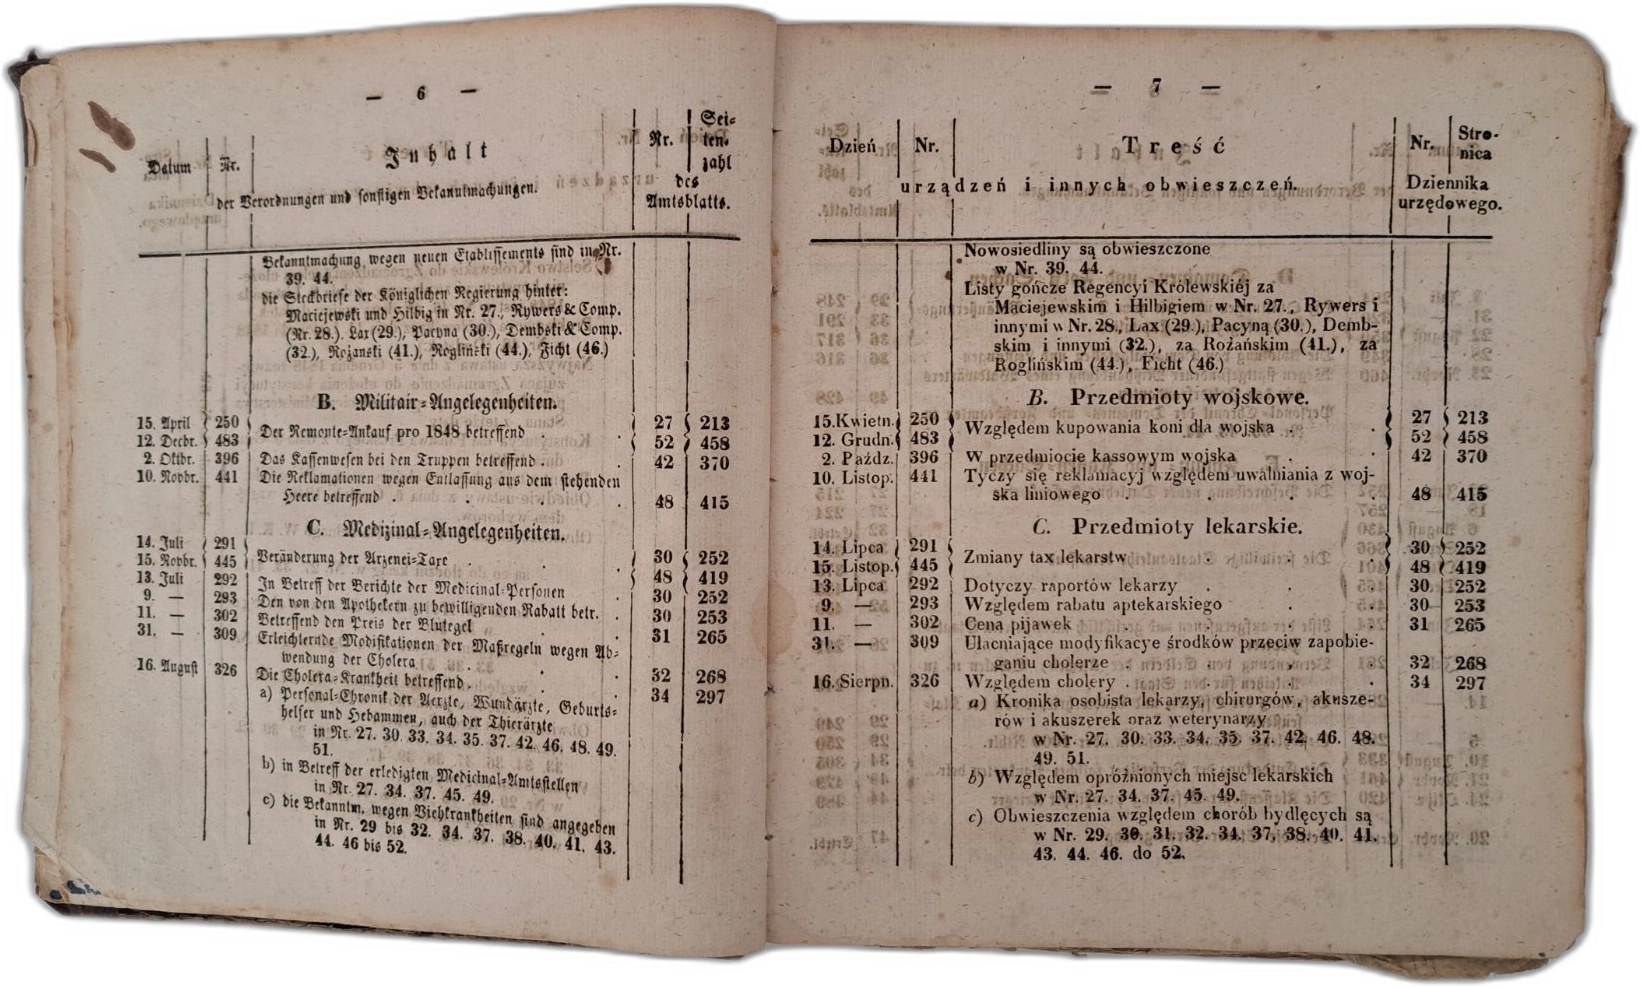 — 6 —
Datum Nr. Inhalt Nr. Sei-
ten-
zahl
der Verordnungen und sonstigen Bekanntmachungen. des
Amtsblatts.
Bekanntmachung wegen neuen Etablissements sind in Nr.
39. 44.
die Steckbriefe der Königlichen Regierung hinter:
Maciejewski und Hilbig in Nr. 27., Rywers & Comp.
(Nr. 28.). Lax (29.), Pacyna (30.), Dembski & Comp.
(32.), Rożanski (41.), Roglinski (44.), Ficht (46.)
B. Militair-Angelegenheiten.
15. April 250 27 213
Der Remonte-Ankauf pro 1848 betreffend .
12. Decbr. 483 52 458
2. Oktbr. 396 Das Kassenwesen bei den Truppen betreffend . . 42 370
10. Novbr. 441 Die Reklamationen wegen Entlassung aus dem stehenden
Heere betreffend . . . 48 415
C. Medizinal-Angelegenheiten.
14. Juli 291 30 252
Veränderung der Arzenei-Taxe . . .
15. Novbr. 445 48 419
13. Juli 292 In Betreff der Berichte der Medicinal-Personen 30 252
9. — 293 Den von den Apothekern zu bewilligenden Rabatt betr. . 30 253
11. — 302 Betreffend den Preis der Blutegel . . 31 265
31. — 309 Erleichternde Modifikationen der Maßregeln wegen Ab-
wendung der Cholera . . . 32 268
16. August 326 Die Cholera-Krankheit betreffend . . . 34 297
a) Personal-Chronik der Aerzte, Wundärzte, Geburts-
helfer und Hebammen, auch der Thierärzte
in Nr. 27. 30. 33. 34. 35. 37. 42. 46. 48. 49.
51.
b) in Betreff der erledigten Medicinal-Amtsstellen
in Nr. 27. 34. 37. 45. 49.
c) die Bekanntm. wegen Viehkrankheiten sind angegeben
in Nr. 29 bis 32. 34. 37. 38. 40. 41. 43.
44. 46 bis 52.
— 7 —
Dzień Nr. Treść Nr. Stro-
nica
urządzeń i innych obwieszczeń. Dziennika
urzędowego.
Nowosiedliny są obwieszczone
w Nr. 39. 44.
Listy gończe Regencyi Królewskiéj za
Maciejewskim i Hilbigiem w Nr. 27., Rywers i
innymi w Nr. 28., Lax (29.), Pacyną (30.), Demb-
skim i innymi (32.), za Rożańskim (41.), za
Roglińskim (44.), Ficht (46.)
B. Przedmioty wojskowe.
15. Kwietn. 250 27 213
Względem kupowania koni dla wojska . .
12. Grudn. 483 52 458
2. Paźdz. 396 W przedmiocie kassowym wojska . . 42 370
10. Listop. 441 Tyczy się reklamacyj względem uwalniania z woj-
ska liniowego . . . 48 415
C. Przedmioty lekarskie.
14. Lipca 291 30 252
Zmiany tax lekarstw . . .
15. Listop. 445 48 419
13. Lipca 292 Dotyczy raportów lekarzy . . 30 252
9. — 293 Względem rabatu aptekarskiego . . 30 253
11. — 302 Cena pijawek . . . . 31 265
31. — 309 Ulacniające modyfikacye środków przeciw zapobie-
ganiu cholerze . . . . 32 268
16. Sierpn. 326 Względem cholery . . . . 34 297
a) Kronika osobista lekarzy, chirurgów, akusze-
rów i akuszerek oraz weterynarzy
w Nr. 27. 30. 33. 34. 35. 37. 42. 46. 48.
49. 51.
b) Względem opróżnionych miejsc lekarskich
w Nr. 27. 34. 37. 45. 49.
c) Obwieszczenia względem chorób bydlęcych są
w Nr. 29. 30. 31. 32. 34. 37. 38. 40. 41.
43. 44. 46. do 52.